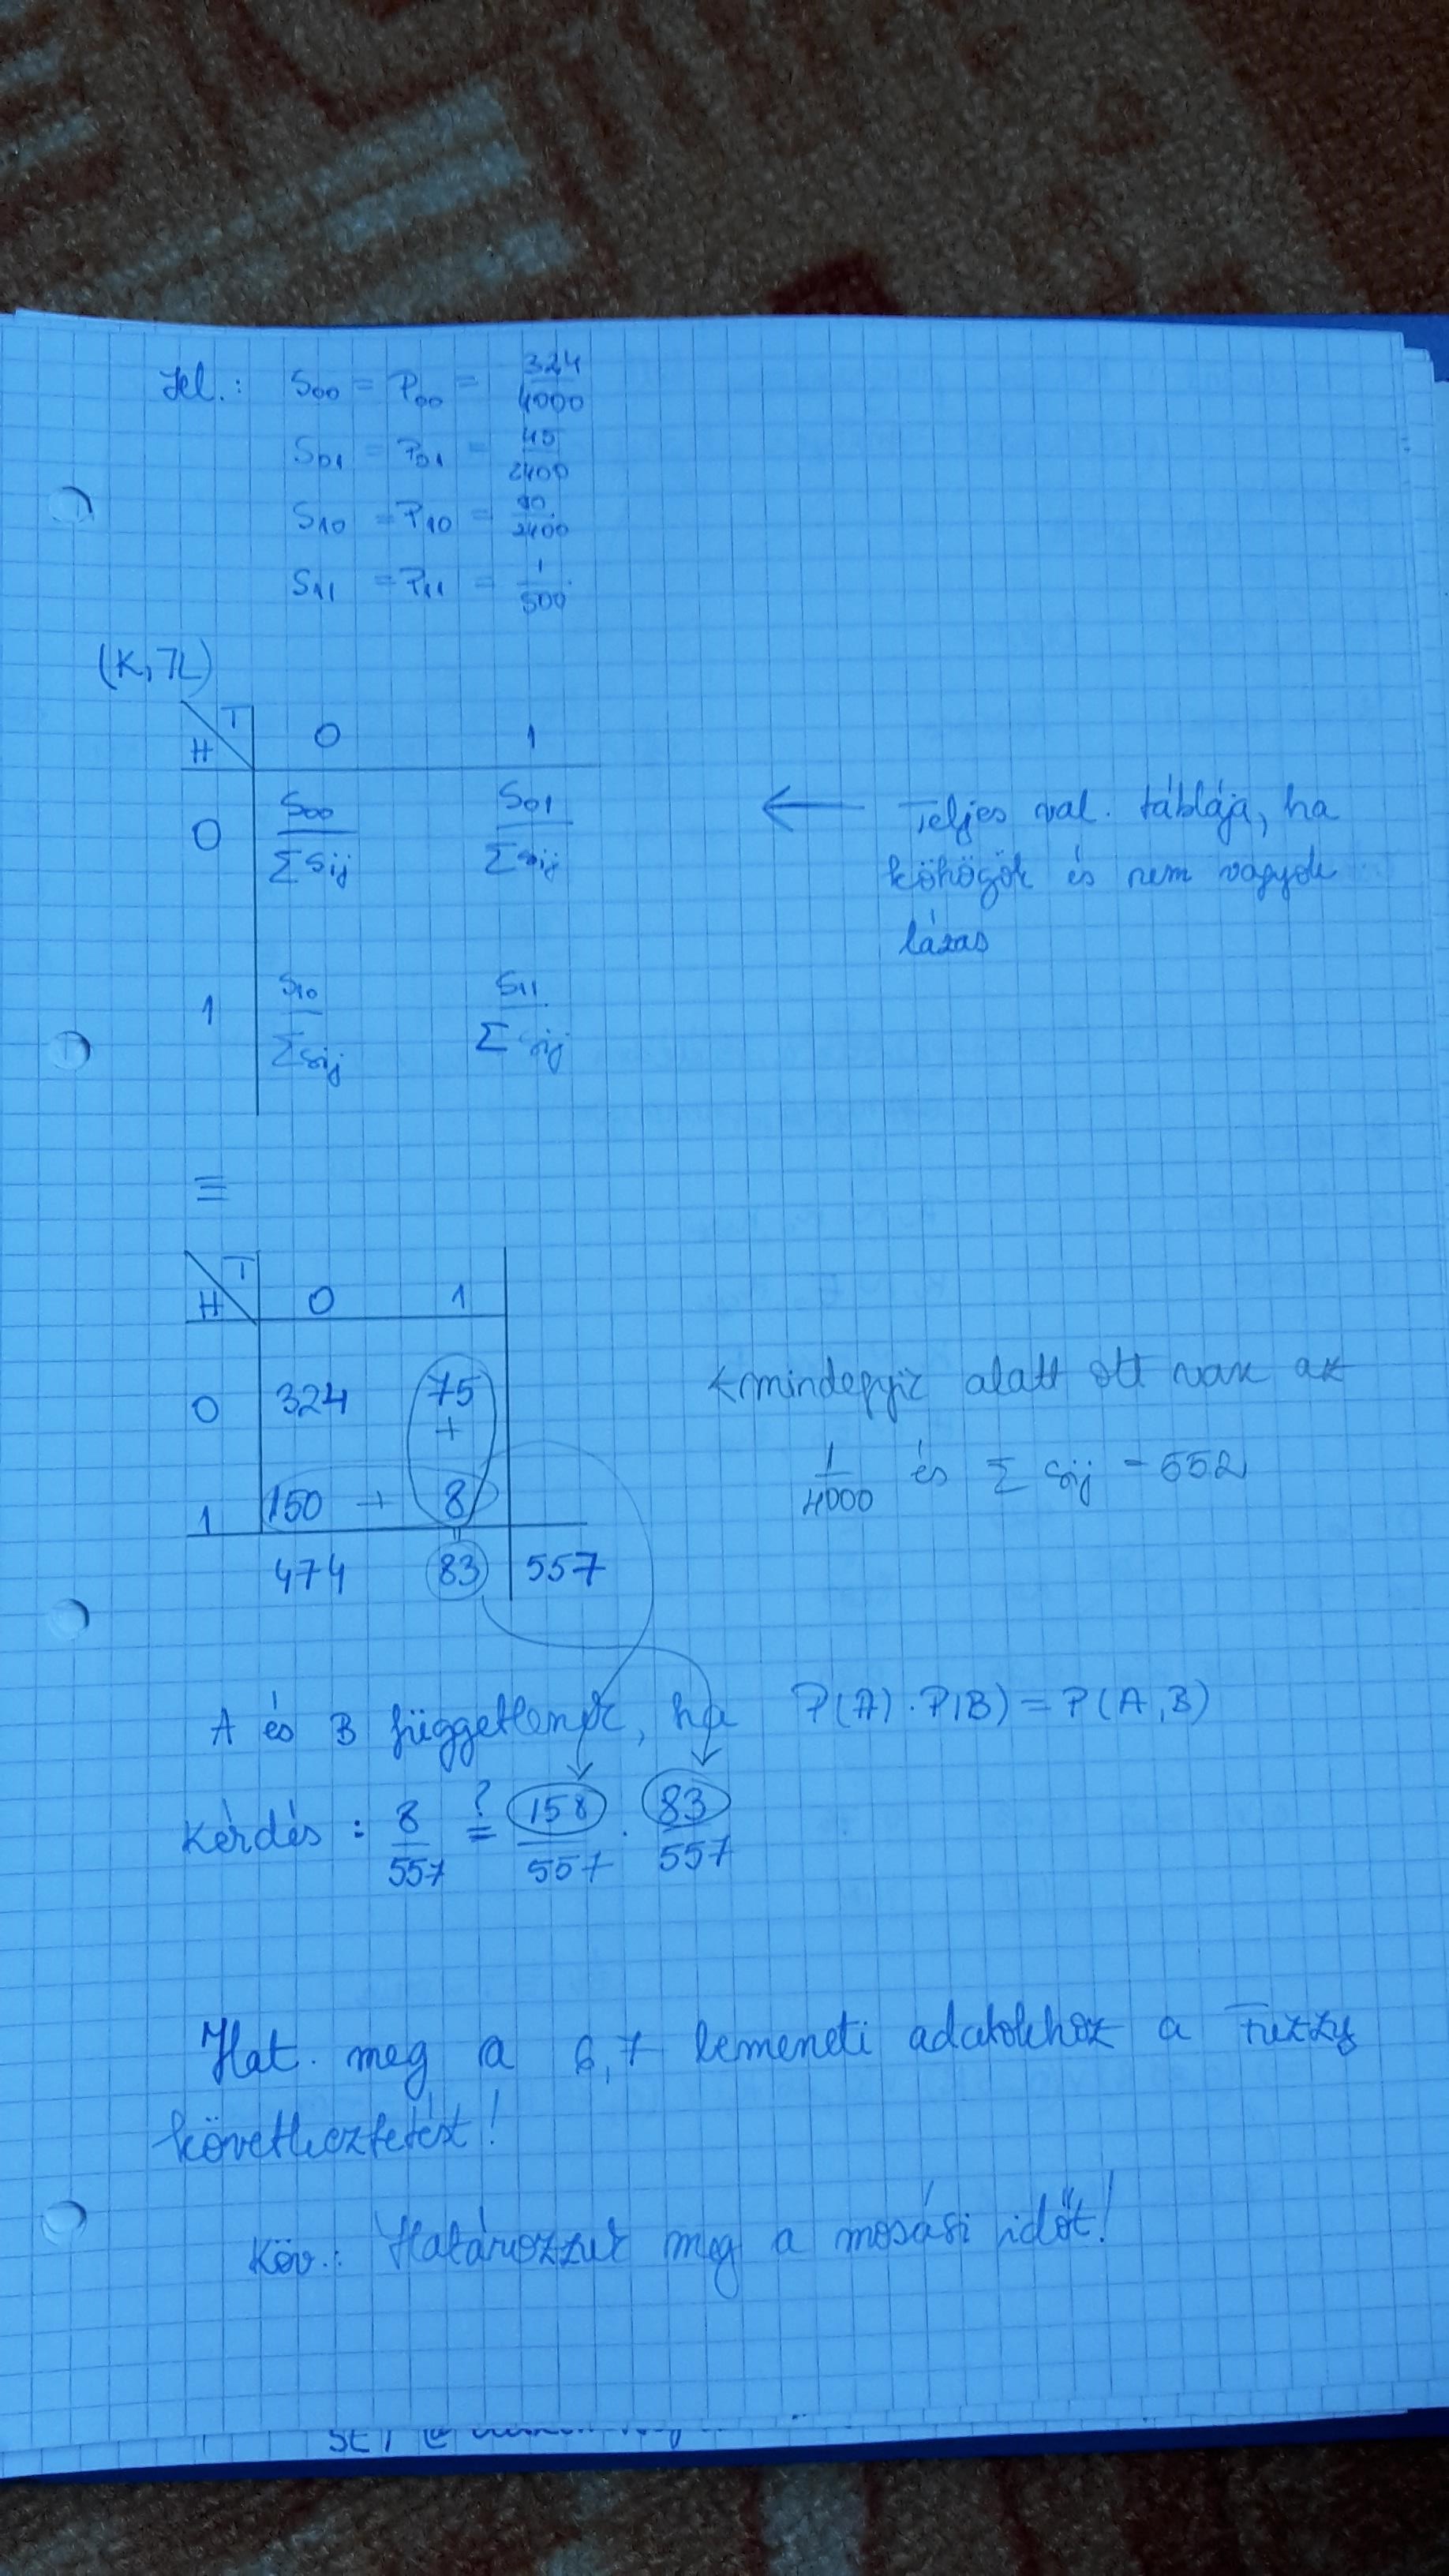 Jel.: S00 = P00 = 324/4000
S01 = P01 = 45/2400
S10 = P10 = 90/2400
S11 = P11 = 1/500
(K,7L)
H T 0 1
0 S00/ΣSij S01/ΣSij
← Teljes val. táblája, ha
köhögök és nem vagyok
lázas
1 S10/ΣSij S11/ΣSij
≡
H T 0 1
0 324 75
+
1 150 + 8
474 83 557
← mindegyik alatt ott van az
1/4000 és Σ Sij = 552
A és B függetlenek, ha P(A)·P(B) = P(A,B)
Kérdés: 8/557 ?= 158/557 · 83/557
Hat. meg a 6,7 bemeneti adatokhoz a Fuzzy
következtetést!
Köv.: Határozzuk meg a mosási időt!